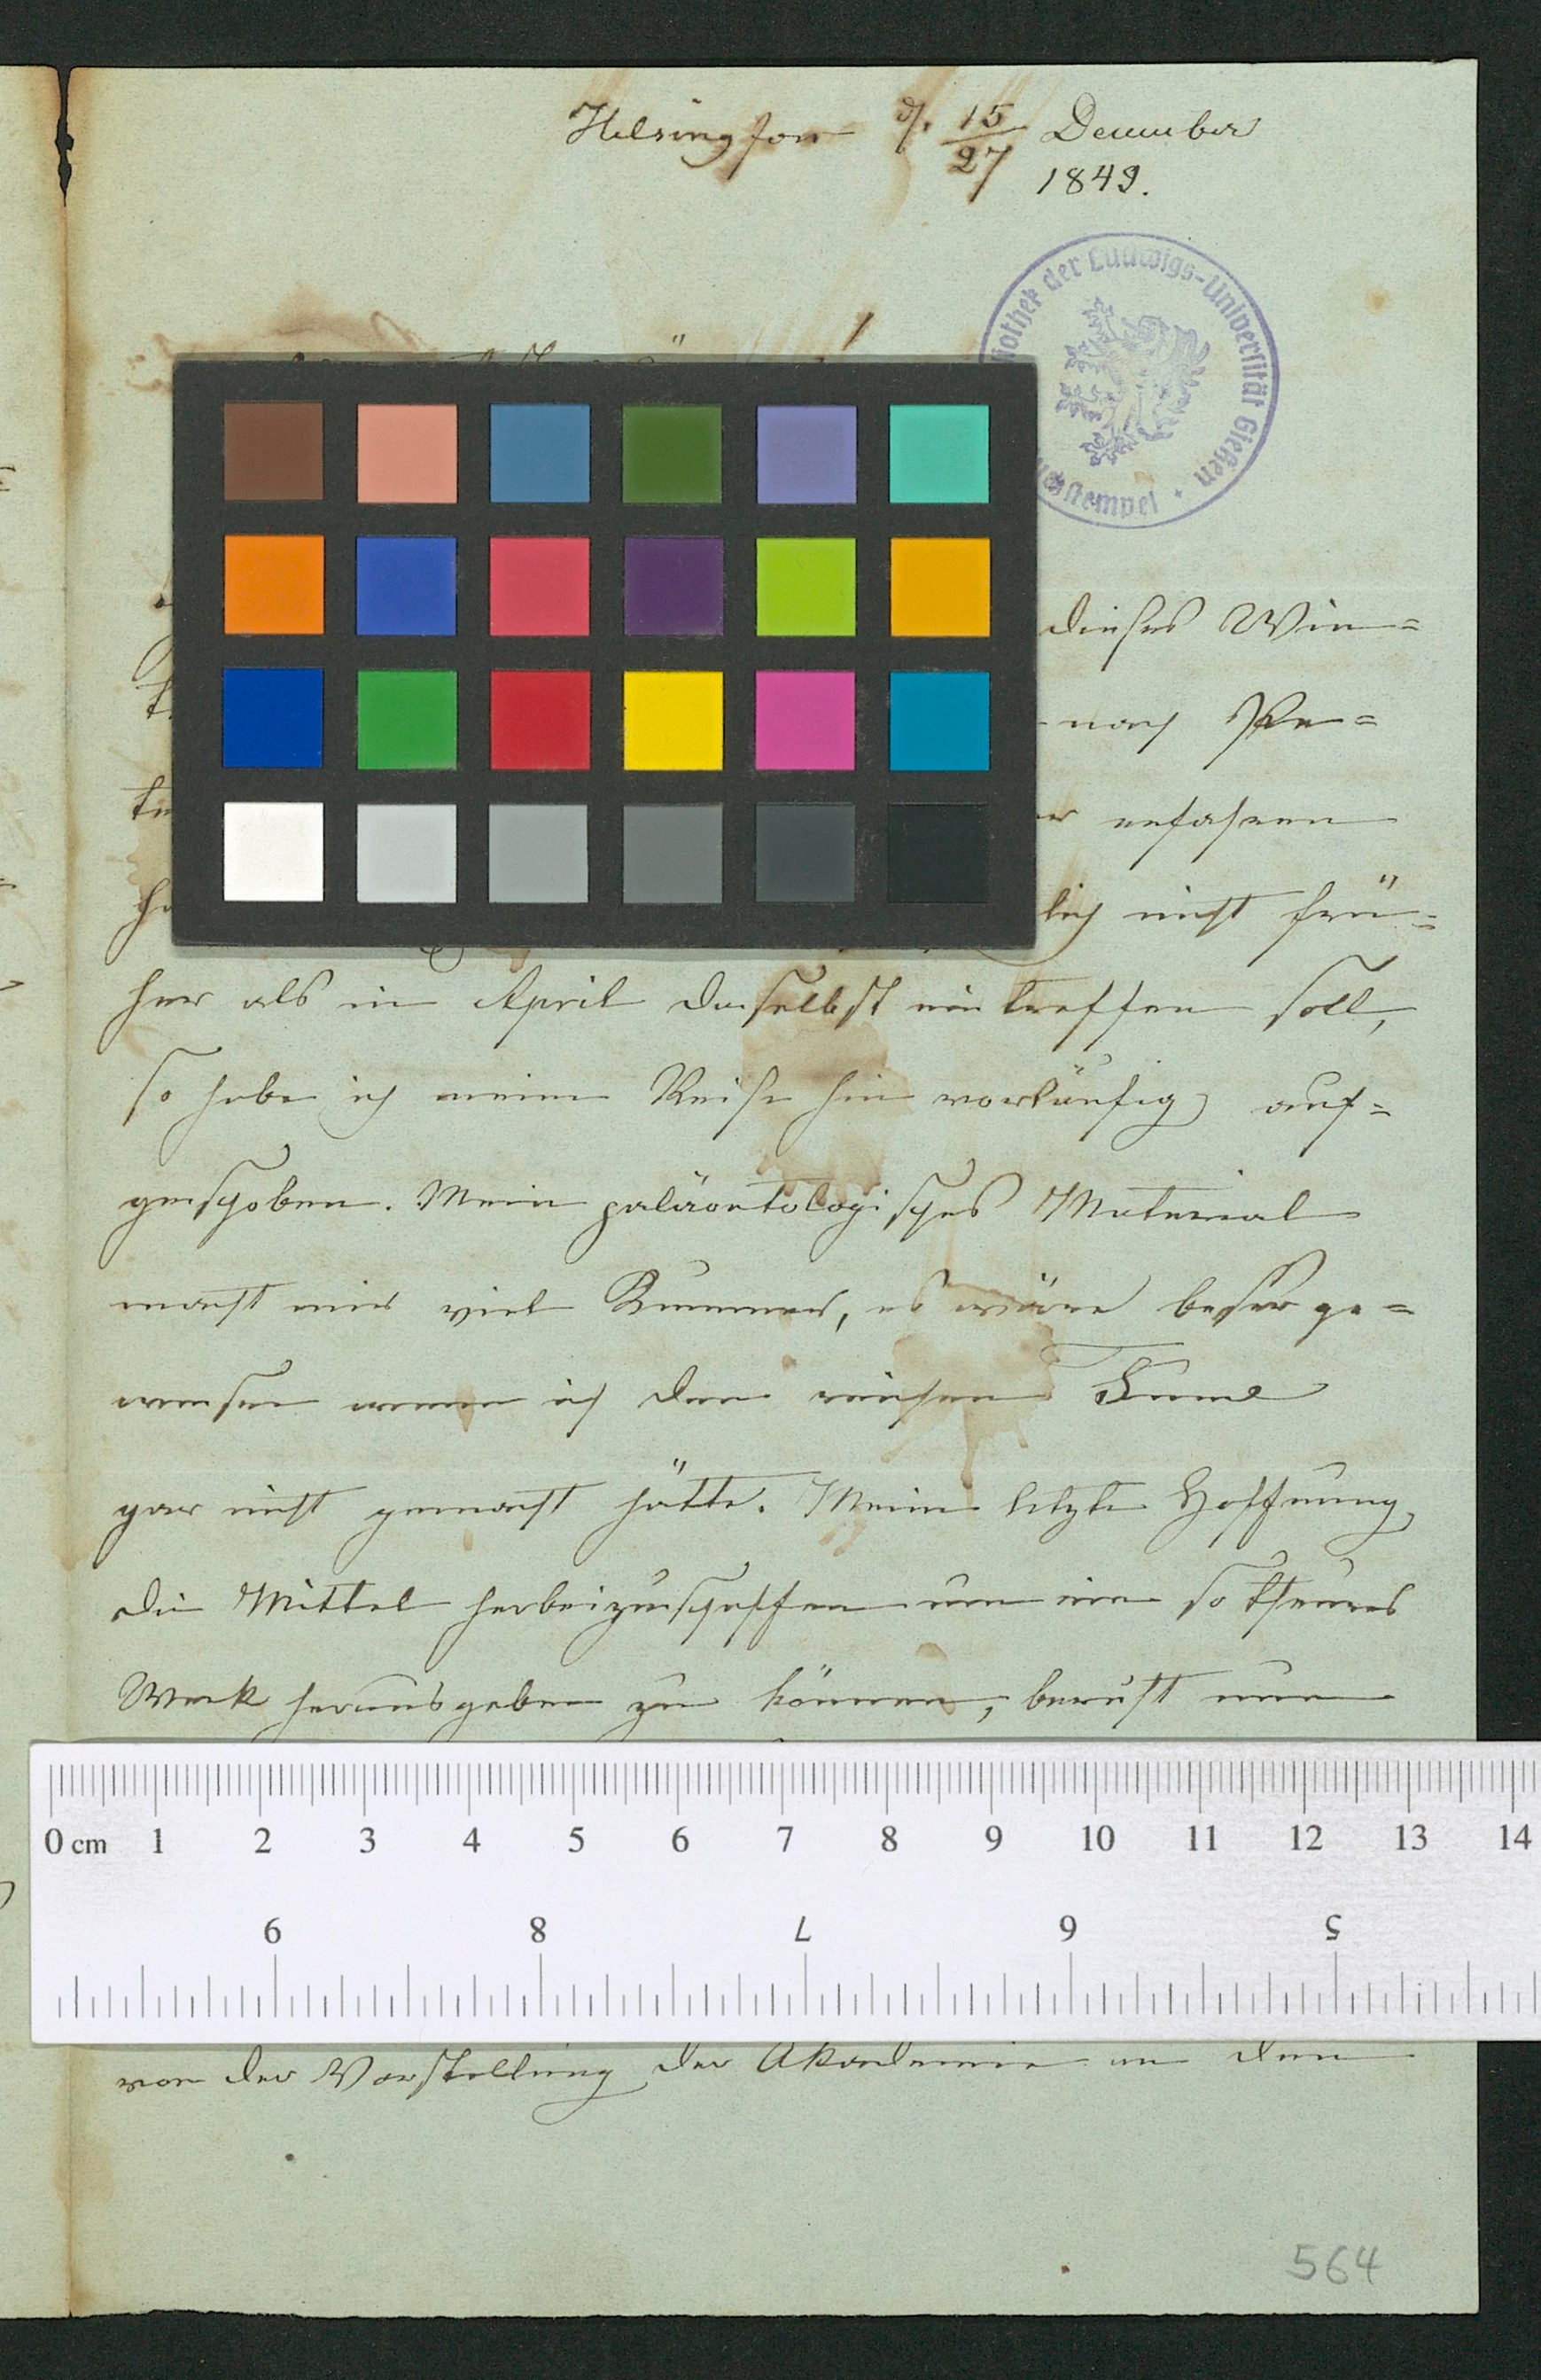 Helsingfors d. 15/27 December
1849.
der Ludwigs-Universität Gießen
dieses Win=
nach Pe=
er erfahren
lich nicht frü=
her als im April daselbst eintreffen soll,
so habe ich meine Reise hin vorläufig auf=
geschoben. Mein paläontologisches Material
macht mir viel Kummer, es wäre besser ge=
wesen wenn ich den reichen Fund
gar nicht gemacht hätte. Meine letzte Hoffnung
die Mittel herbeizuschaffen um ein so theures
Werk herausgeben zu können, beruht nun
0 cm 1 2 3 4 5 6 7 8 9 10 11 12 13 14
9 8 7 6 5
von der Vorstellung der Akademie an den
564